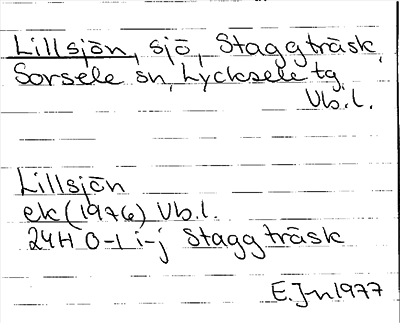 Lillsjön, sjö, Staggträsk,
Sorsele sn, Lycksele tg.
Vb.l.
Lillsjön
ek (1976) Vb.l.
24H 0-1 i-j Staggträsk
E.J-n 1977